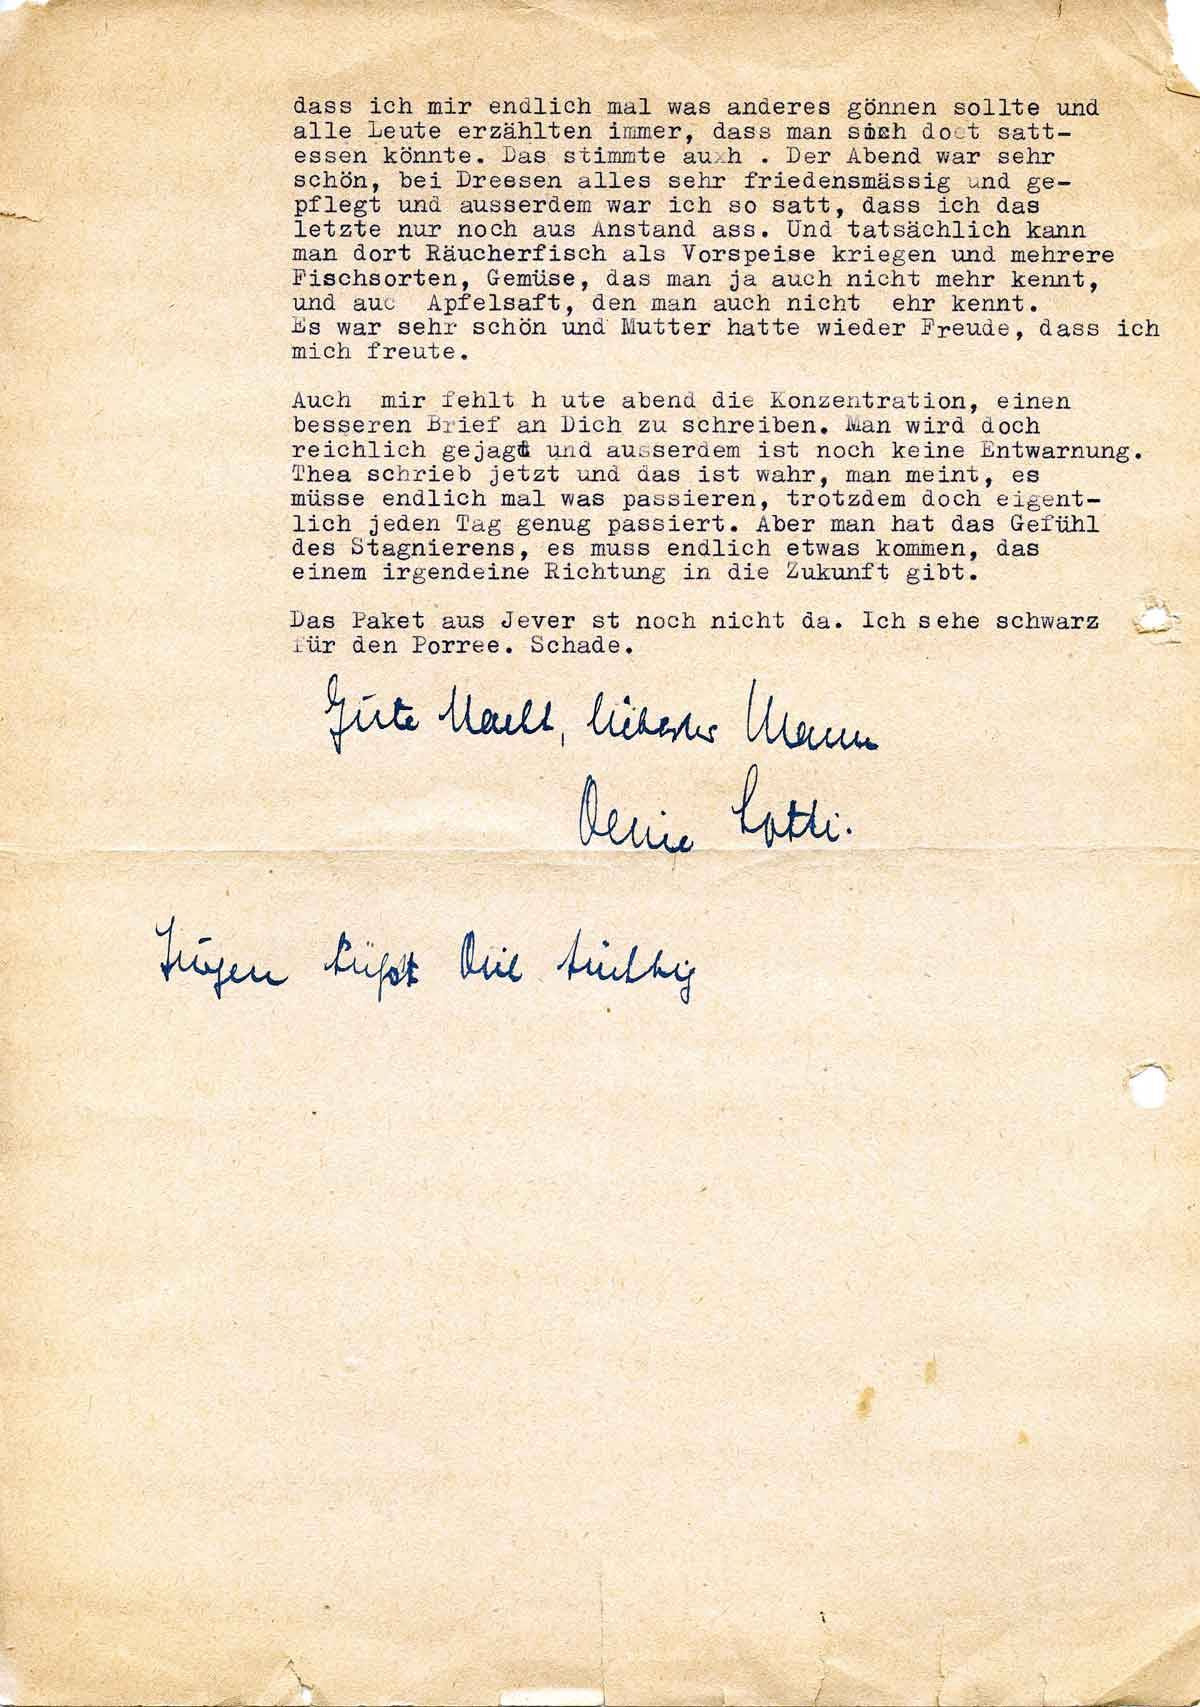 dass ich mir endlich mal was anderes gönnen sollte und
alle Leute erzählten immer, dass man sich doet satt-
essen könnte. Das stimmte auxh . Der Abend war sehr
schön, bei Dreesen alles sehr friedensmässig und ge-
pflegt und ausserdem war ich so satt, dass ich das
letzte nur noch aus Anstand ass. Und tatsächlich kann
man dort Räucherfisch als Vorspeise kriegen und mehrere
Fischsorten, Gemüse, das man ja auch nicht mehr kennt,
und auc Apfelsaft, den man auch nicht ehr kennt.
Es war sehr schön und Mutter hatte wieder Freude, dass ich
mich freute.
Auch mir fehlt h ute abend die Konzentration, einen
besseren Brief an Dich zu schreiben. Man wird doch
reichlich gejagt und ausserdem ist noch keine Entwarnung.
Thea schrieb jetzt und das ist wahr, man meint, es
müsse endlich mal was passieren, trotzdem doch eigent-
lich jeden Tag genug passiert. Aber man hat das Gefühl
des Stagnierens, es muss endlich etwas kommen, das
einem irgendeine Richtung in die Zukunft gibt.
Das Paket aus Jever st noch nicht da. Ich sehe schwarz
für den Porree. Schade.
Gute Nacht, liebster Mann
Deine Lotti.
Jürgen küßt Dich tüchtig